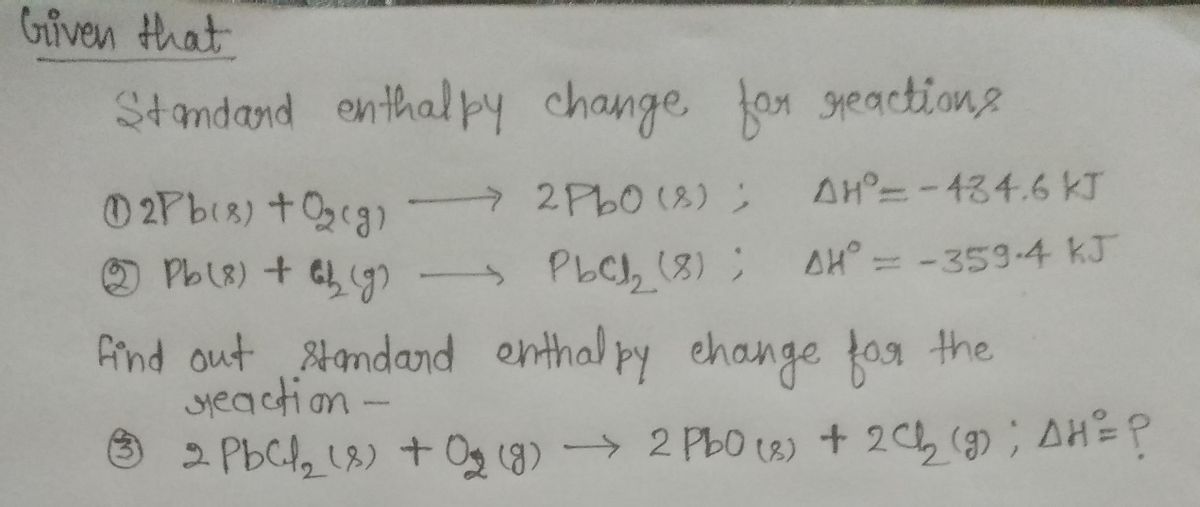 Given that
Standard enthalpy change for reactions
① 2Pb(s) + O₂(g) ⟶ 2PbO(s) ; ΔH° = -434.6 kJ
② Pb(s) + Cl₂(g) ⟶ PbCl₂(s) ; ΔH° = -359.4 kJ
find out standard enthalpy change for the
reaction –
③ 2PbCl₂(s) + O₂(g) ⟶ 2PbO(s) + 2Cl₂(g) ; ΔH° = ?